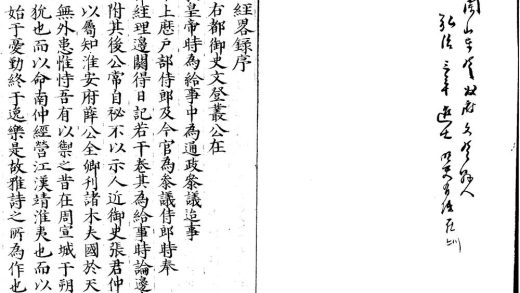 弘治三年進士
經略録序
右都御史文登叢公在
皇帝時為給事中為通政叅議迨事
上歷户部侍郎及今官為叅議侍郎時奉
經理邊關得日記若干卷其為給事時論邊
附其後公常自秘不以示人近御史張君仲
以屬知淮安府薛公全卿刋諸木夫國於天
無外患惟恃吾有以禦之昔在周宣城于朔
狁也而以命南仲經營江漢靖淮夷也而以
始于憂勤終于逸樂是故雅詩之所為作也